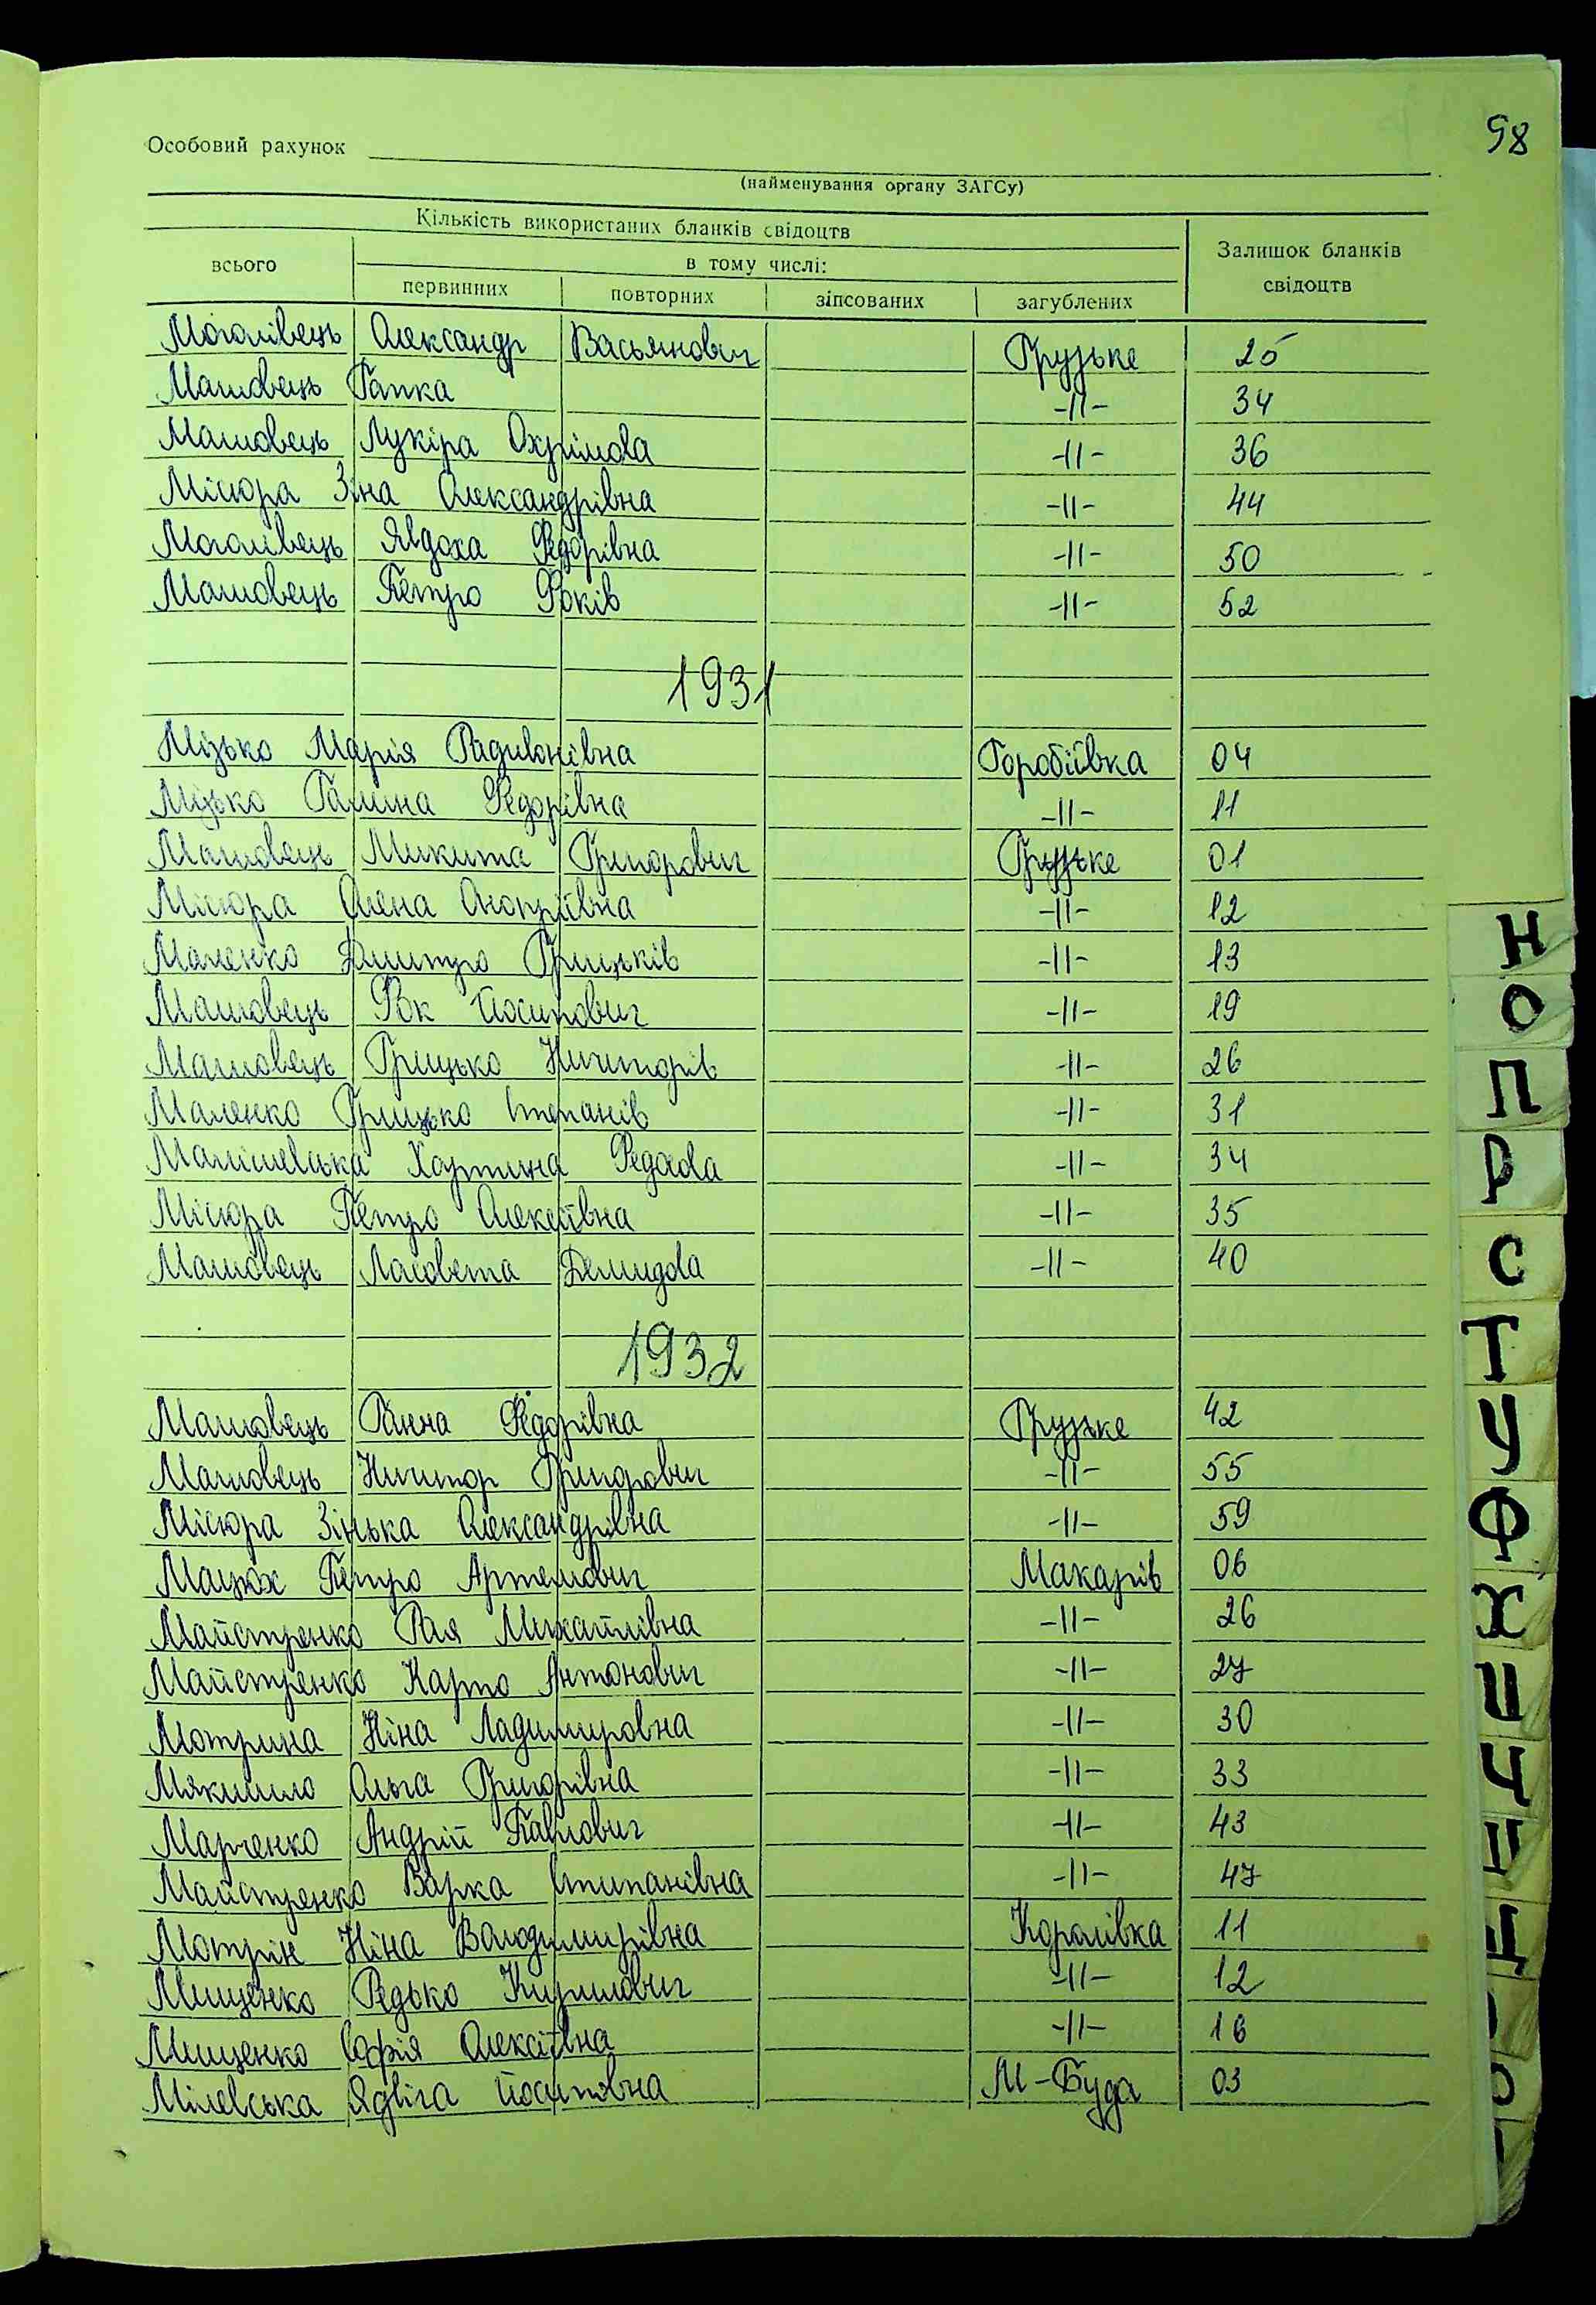 98
Особовий рахунок
(найменування органу ЗАГСу)
Кількість використаних бланків свідоцтв
Залишок бланків свідоцтв
всього
в тому числі:
первинних повторних зіпсованих загублених
Могалівець Олександр Васьянович Грузьке 25
Машовець Гапка -II- 34
Машовець Лукіра Охрімова -II- 36
Місюра Зіна Олександрівна -II- 44
Могалівець Явдоха Федорівна -II- 50
Машовець Петро Фоків -II- 52
1931
Мізько Марія Радивонівна Горобіївка 04
Мізько Галина Федорівна -II- 11
Машовець Микита Григорович Грузьке 01
Місюра Олена Оноприївна -II- 12
Маленко Дмитро Грицьків -II- 13
Машовець Фок Йосипович -II- 19
Машовець Грицько Ничипорів -II- 26
Маленко Грицько Степанів -II- 31
Малішевська Хартина -II- 34
Місюра Петро Олексіївна -II- 35
Машовець Лисовета Демидова -II- 40
1932
Машовець Ганна Федорівна Грузьке 42
Машовець Ничипор Григорович -II- 55
Місюра Зінька Олександрівна -II- 59
Мацюх Петро Артемович Макарів 06
Майстренко Рая Михайлівна -II- 26
Майстренко Карпо Антонович -II- 27
Мотрина Ніна Ладимировна -II- 30
Мякшило Ольга Григорівна -II- 33
Марченко Андрій Павлович -II- 43
Майстренко Варка Стипанівна -II- 47
Мотрін Ніна Володимирівна Королівка 11
Мищенко Федько Кирилович -II- 12
Мищенко Софія Олексіївна -II- 16
Мілевська Ядвіга Йосипівна М-Буда 03
Н
О
П
Р
С
Т
У
Ф
Х
Ц
Ч
Ш
Щ